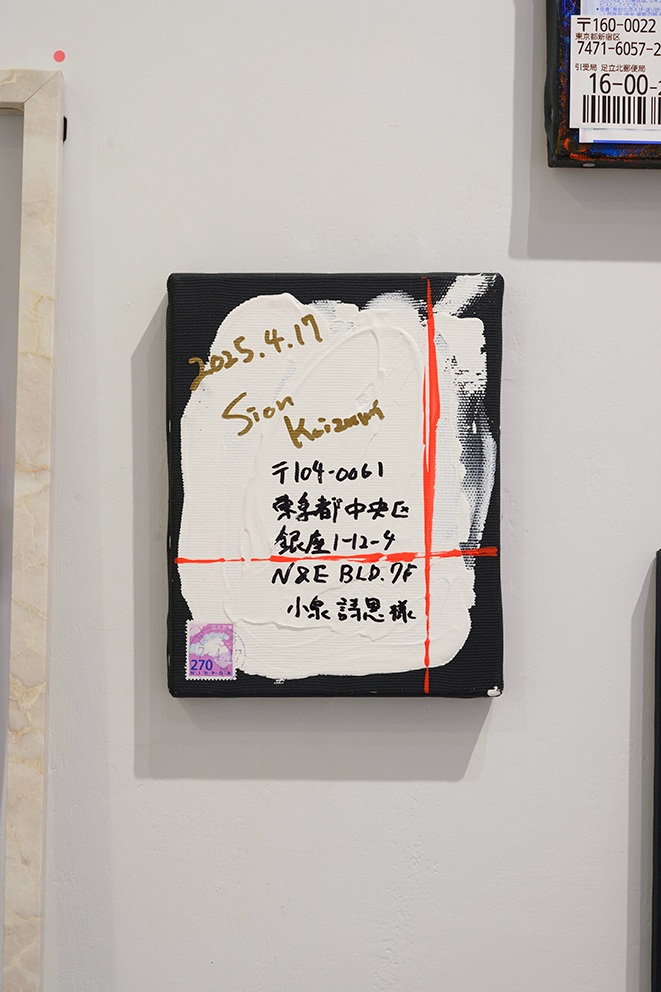 〒160-0022
東京都新宿区
7471-6057-2
引受局 足立北郵便局
16-00-2
2025.4.17
Sion
Koizumi
〒104-0061
東京都中央区
銀座1-12-4
N&E BLD.7F
小泉詩恩様
270
NIPPON